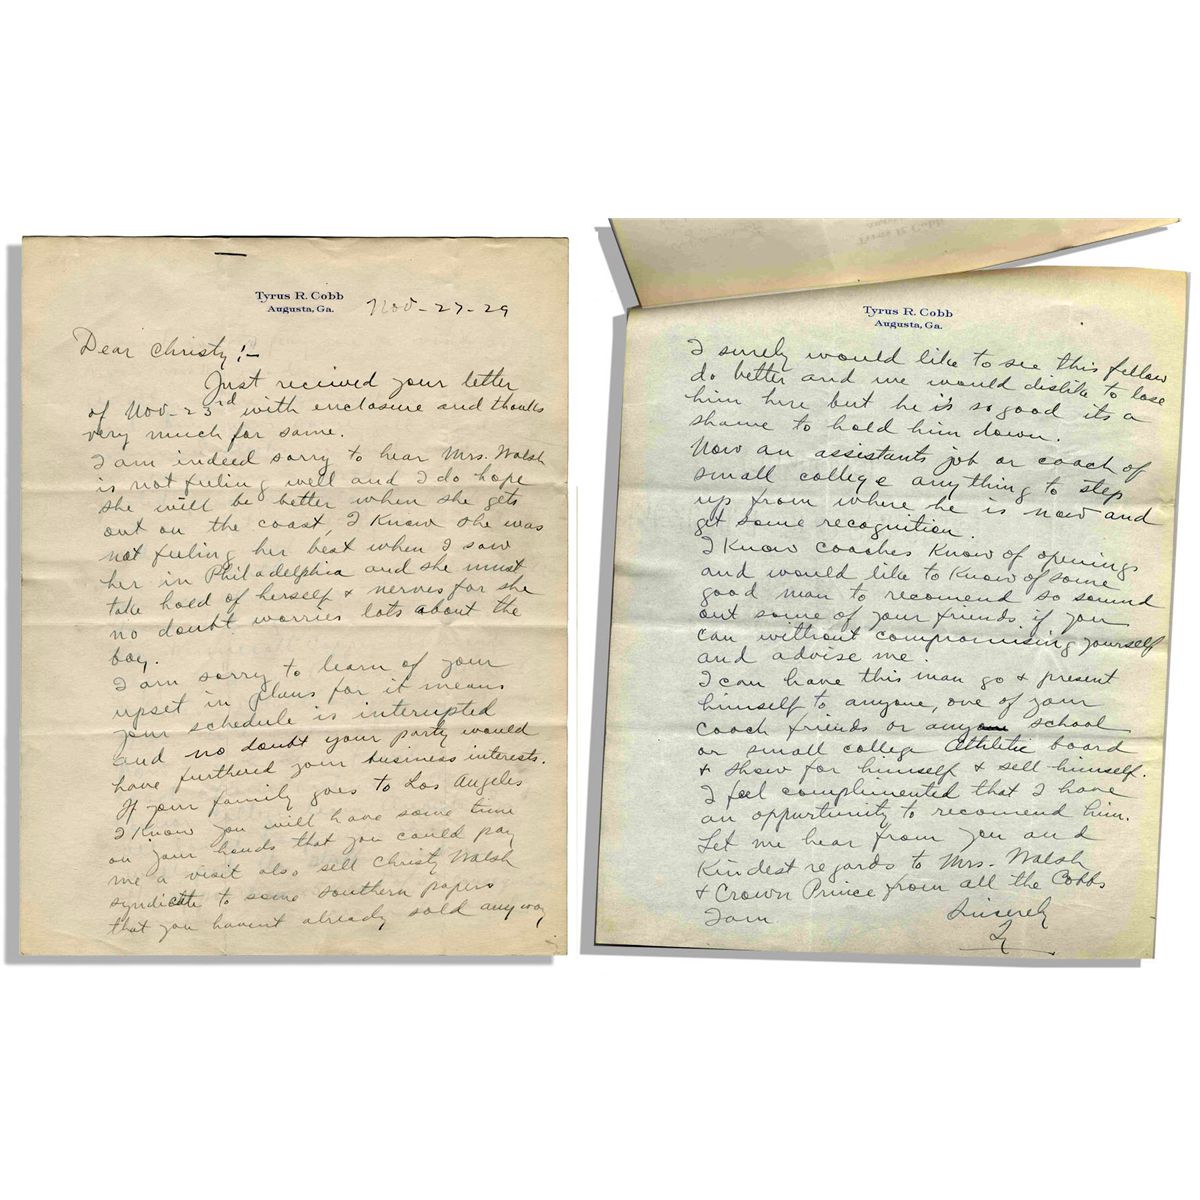 Tyrus R. Cobb
Augusta, Ga.
Nov-27-29
Dear Christy!-
Just recieved your letter
of Nov-23rd with enclosure and thanks
very much for same.
I am indeed sorry to hear Mrs. Walsh
is not feeling well and I do hope
she will be better when she gets
out on the coast, I know she was
not feeling her best when I saw
her in Philadelphia and she must
take hold of herself + nerves for she
no doubt worries lots about the
boy.
I am sorry to learn of your
upset in plans for it means
your schedule is interupted
and no doubt your party would
have furthered your business interests.
If your family goes to Los Angeles
I know you will have some time
on your hands that you could pay
me a visit also sell Christy Walsh
syndicate to some southern papers
that you havent already sold anyway
Tyrus R. Cobb
Augusta, Ga.
Tyrus R. Cobb
Augusta, Ga.
I surely would like to see this fellow
do better and we would dislike to lose
him here but he is so good its a
shame to hold him down.
Now an assistants job or coach of
small college anything to step
up from where he is now and
get some recognition.
I know coaches know of openings
and would like to know of some
good man to recomend so sound
out some of your friends if you
can without compromising yourself
and advise me.
I can have this man go + present
himself to anyone, one of your
coach friends or any school
or small college athletic board
+ show for himself + sell himself.
I feel complimented that I have
an oppurtunity to recomend him.
Let me hear from you and
Kindest regards to Mrs. Walsh
+ Crown Prince from all the Cobbs
I am
Sincerely
Ty